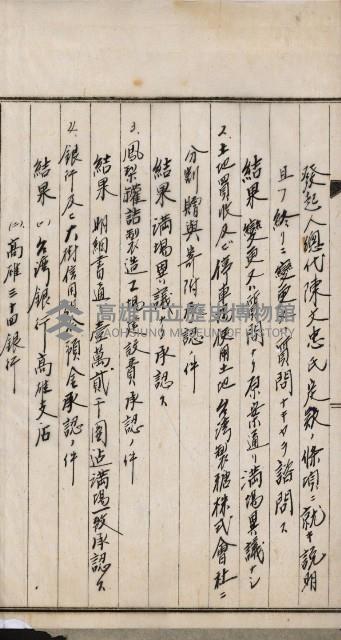 發起人總代陳文忠氏定款ノ條項ニ就キ説明
且ツ終リニ變更ノ質問ナキヤヲ諮問ス
結果 變更又ハ質問ナク原案通リ満場異議ナシ
2. 土地買收及ビ停車場使用土地台湾製糖株式會社ニ
分割贈與寄附承認ノ件
結果 満場異議ナク承認ス
3. 鳳梨罐詰製造工場建設費承認ノ件
結果 明細書通リ壹萬貳千圓迠満場一致承認ス
4. 銀行及ビ大樹信用組合預金承認ノ件
結果 (1) 台湾銀行高雄支店
(二) 高雄三十四銀行
高雄市立歷史博物館
KAOHSIUNG MUSEUM OF HISTORY